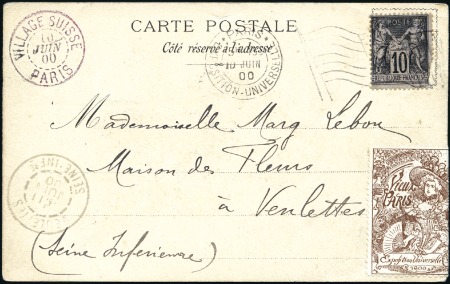 CARTE POSTALE
Côté réservé à l'adresse
VILLAGE SUISSE
10
JUIN
00
PARIS
PARIS
10 JUIN
00
EXPOSITION-UNIVERSELLE
POSTES
10
REPUBLIQUE FRANCAISE
Mademoiselle Marg Lebon
Maison des Fleurs
à Venlettes
(Seine Inférieure)
SEINE-INFRE
Vieux
PARIS
Exposition Universelle
1900